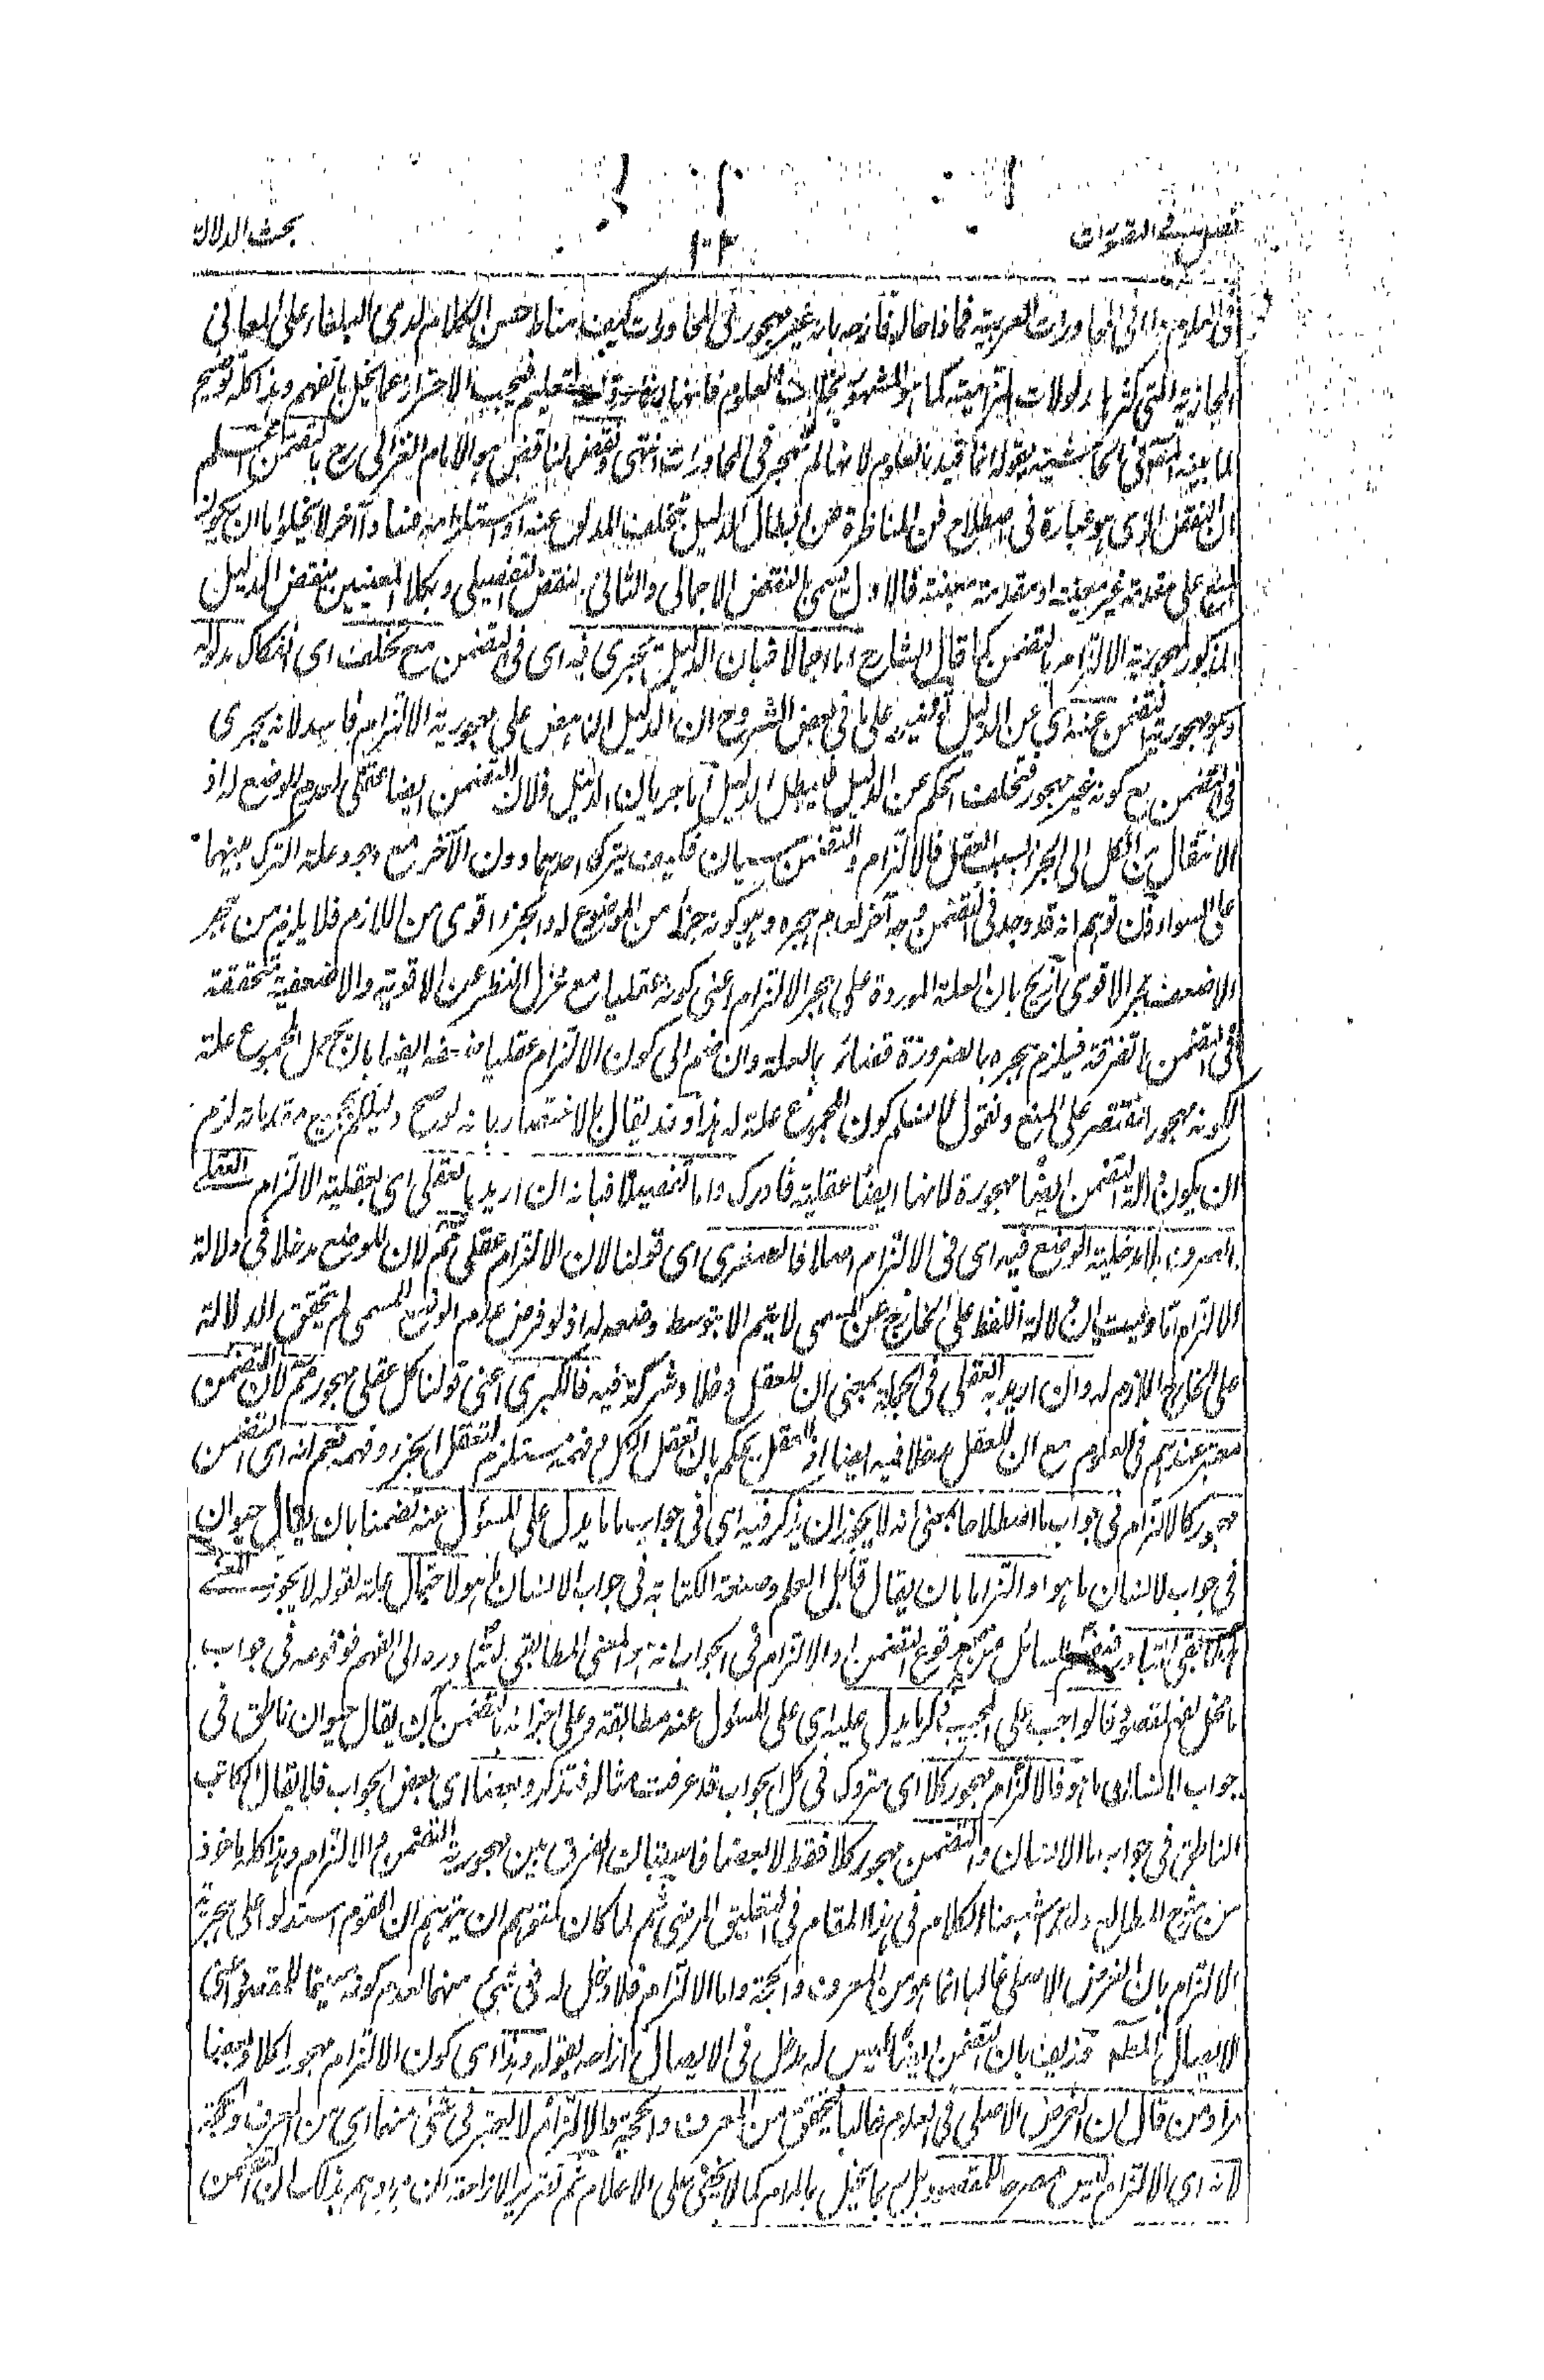 بحث الدلالة
١٠٢
فى العلوم واما فى المحاورات العربية فما ذا حاله فازاحه بانه غير مهجور فى المحاورات كيف ومناط حسن الكلام لدى البلغاء على المعانى
المجازية التى كثرها مدلولات التزامية كما هو المشهور بخلاف العلوم فانها التعليم فيجب الاحتراز عما يخل بالفهم وهذا كله توضيح
لما بينه المص فى الحاشية بقوله انما قيد بالعلوم لانها لم تهجر فى المحاورات انتهى ونقض الناقض هو الامام الغزالى رح بالتضمن اعلم
ان النقض الذى هو عبارة فى اصطلاح فن المناظرة عن ابطال الدليل بتخلف المدلول عنه او استلزامه فسادا آخر لا يخلوا ما ان يكون
المنع على مقدمة غير معينة او مقدمة معينة فالاول يسمى بالنقض الاجمالى والثانى بالنقض التفصيلى وبكلا المعنيين ينقض الدليل
المذكور لمهجورية الالتزام بالتضمن كما قال الشارح اما اجمالا فبان الدليل يجرى فيه اى فى التضمن مع تخلف اى انفكاك مدلوله
وهو مهجورية التضمن عنه اى عن الدليل توضيحه على ما فى بعض الشروح ان الدليل الناهض على مهجورية الالتزام فاسد لانه يجرى
فى التضمن مع كونه غير مهجور فتخلف الحكم عن الدليل فيبطل الدليل اما جريان الدليل فلان التضمن ايضا عقلى لعدم الوضع له اذ
الانتقال من الكل الى الجزء بسبب العقل فالالتزام والتضمن سيان فكيف يترك احدهما دون الآخر مع وجود علة الترك فيهما
على السواء فان توهم انه قد وجد فى التضمن وجه آخر لعدم هجره وهو كونه جزءا من الموضوع له والجزء اقوى من اللازم فلا يلزم من هجر
الاضعف هجر الاقوى ازيح بان العلة الموردة على هجر الالتزام اعنى كونه عقليا مع عزل النظر عن الاقوية والاضعفية متحققة
فى التضمن بلا تفرقة فيلزم هجره بالضرورة قضاء بالعلة وان ضم الى كون الالتزام عقليا ضعفه ايضا بان يجعل المجموع علة
لكونه مهجورا نقتصر على المنع ونقول لا نسلم كون المجموع علة له هذا وقد يقال بالاختصار بانه لو صح دليلكم بجميع مقدماته لزم
ان يكون دلالة التضمن ايضا مهجورة لانها ايضا عقلية فادرك واما تفصيلا فبانه ان اريد بالعقلى اى بعقلية الالتزام العقلى
الصرف بلا مدخلية الوضع فيه اى فى الالتزام اصلا فالصغرى اى قولنا لان الالتزام عقلى ثم لان للوضع مدخلا فى دلالة
الالتزام اما دريت ان دلالة اللفظ على الخارج عن المسمى لا يتم الا بتوسط وضعه له اذ لو فرض عدم الوضع للمسمى لم يتحقق الدلالة
على الخارج اللازم له وان اريد به العقلى فى الجملة بمعنى ان للعقل دخلا وشركة فيه فالكبرى اعنى قولنا كل عقلى مهجور ثم لان التضمن
معتبر عندهم فى العلوم مع ان للعقل مدخلا فيه ايضا اذ العقل يحكم بان تعقل الكل وفهمه يستلزم لتعقل الجزء وفهمه نعم انه اى التضمن
مهجور كالالتزام فى جواب ما اصطلاحا بمعنى انه لا يجوز ان يذكر فيه اى فى جواب ما ما يدل على المسئول عنه تضمنا بان يقال حيوان
فى جواب الانسان ما هو او التزاما بان يقال قابل العلم وصنعة الكتابة فى جواب الانسان ما هو لاحتمال علة لقوله لا يجوز المعنى
المطابقى السائل من وقوع التضمن او الالتزام فى الجواب انه هو المعنى المطابقى لتبادره الى الفهم فوقوعه فى جواب
ما مخل لفهم المقصود فالواجب على المجيب ذكر ما يدل عليه اى على المسئول عنه مطابقة وعلى اجزائه بالتضمن بان يقال حيوان ناطق فى
جواب الانسان ما هو فالالتزام مهجور كلا اى متروك فى كل الجواب قد عرفت مثاله فتذكر وبعضا اى بعض الجواب فلا يقال الكاتب
الناطق فى جواب ما الانسان والتضمن مهجور كلا فقط لا بعضا فاستبان الفرق بين مهجورية التضمن والالتزام وهذا كله ماخوذ
من شرح المطالع ولقد اشبعنا الكلام فى هذا المقام فى التعليق المرضى ثم لما كان لمتوهم ان يتوهم ان القوم استدلوا على مهجورية
الالتزام بان الغرض الاصلى غالبا انما هو من المعرف والحجة واما الالتزام فلا دخل له فى شئ منهما لعدم كونه صريحا للمقصود اعنى
الايصال بان التضمن ايضا ليس له مدخل فى الايصال ازاحه بقوله وهذا اى كون الالتزام مهجورا كلا وبعضا
مراد من قال ان الغرض الاصلى فى العلوم غالبا يتحقق من المعرف والحجة والالتزام لا يعتبر فى شئ منهما اى من المعرف والحجة
لانه اى الالتزام ليس مصرحا للمقصود بل ربما يخل بالمرام كما لا يخفى على الاعلام ثم تقرير الازاحة ان مرادهم بذلك ان التضمن